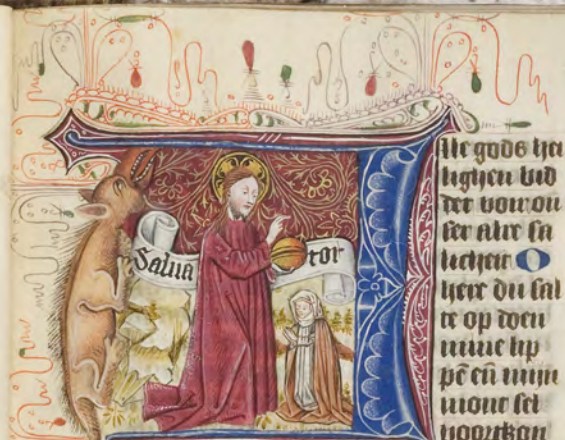 Salua tor
lle gods hei
lighen bid
det voir on
ser alre sa
licheit O
here du sal
te op doen
mine lip
pē eñ mijn
mont sel
voortkon